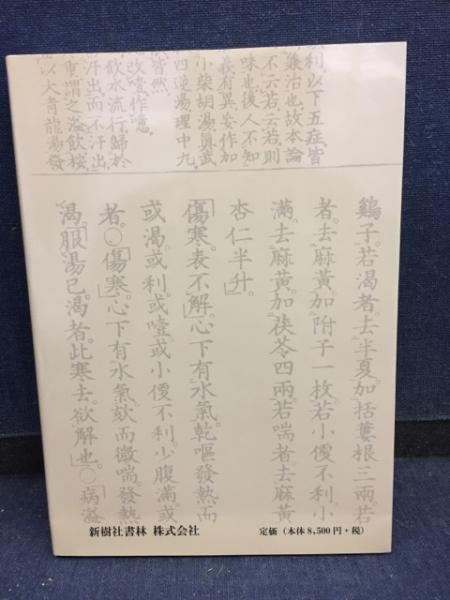 利以下五症皆
兼治也故本論
不示若云若則
味也後人不知
義有異妄作加
小柴胡湯眞武
四逆湯理中九
皆然
改噎作噫
飲水流行歸於
汗出而不汗出
重謂之溢飲桉
以大青龍湯發
鷄子。若渴者去半夏。加括蔞根三兩若
者。去麻黃。加附子一枚。若小便不利小
滿。去麻黃。加茯苓四兩若喘者。去麻黃
杏仁半升」
「傷寒。表不解」心下有水氣。乾嘔發熱而
或渴。或利。或噎。或小便不利。少腹滿或
者。○「傷寒」心下有水氣。欬而微喘。發熱
渴。「服湯已。渴者。此寒去。欲解也」○病溢
新樹社書林 株式会社
定価（本体8,500円+税）